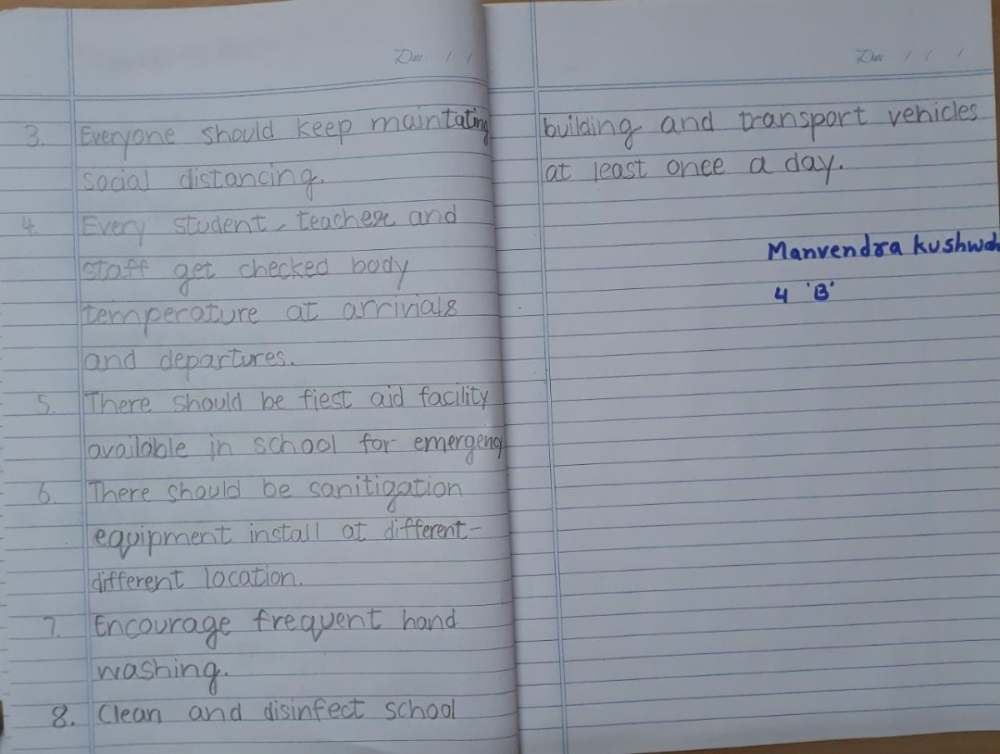 Date / /
3. Everyone should keep maintating
social distancing.
4. Every student, teacher and
staff get checked body
temperature at arrivials
and departures.
5. There should be fiest aid facility
available in school for emergency
6. There should be sanitigation
equipment install at different-
different location.
7. Encourage frequent hand
washing.
8. Clean and disinfect school
Date / / /
building and transport vehicles
at least once a day.
Manvendra Kushwah
4 'B'